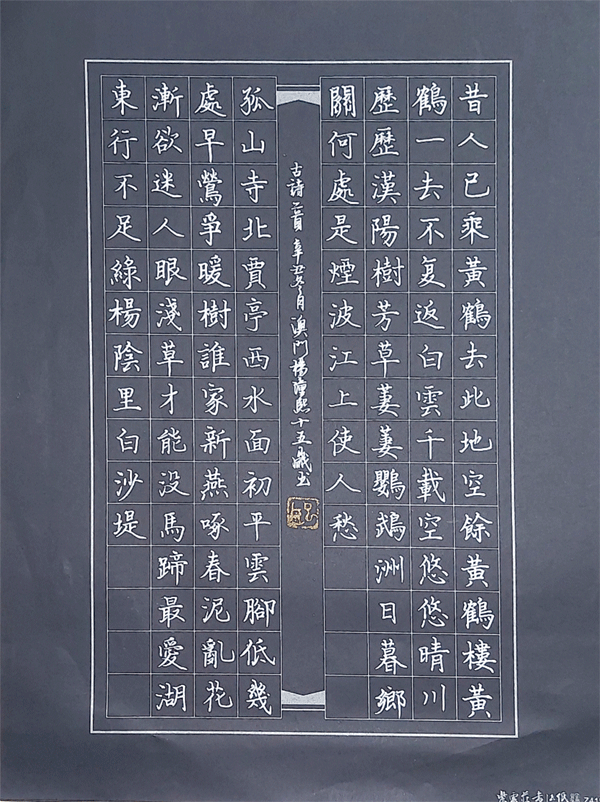 昔人已乘黃鶴去此地空餘黃鶴樓黃
鶴一去不复返白雲千載空悠悠晴川
歷歷漢陽樹芳草萋萋鸚鵡洲日暮鄉
關何處是煙波江上使人愁
古詩二首 辛丑冬月 澳門楊熙十五歲书
孤山寺北賈亭西水面初平雲腳低幾
處早鶯爭暖樹誰家新燕啄春泥亂花
漸欲迷人眼淺草才能没馬蹄最愛湖
東行不足綠楊陰里白沙堤